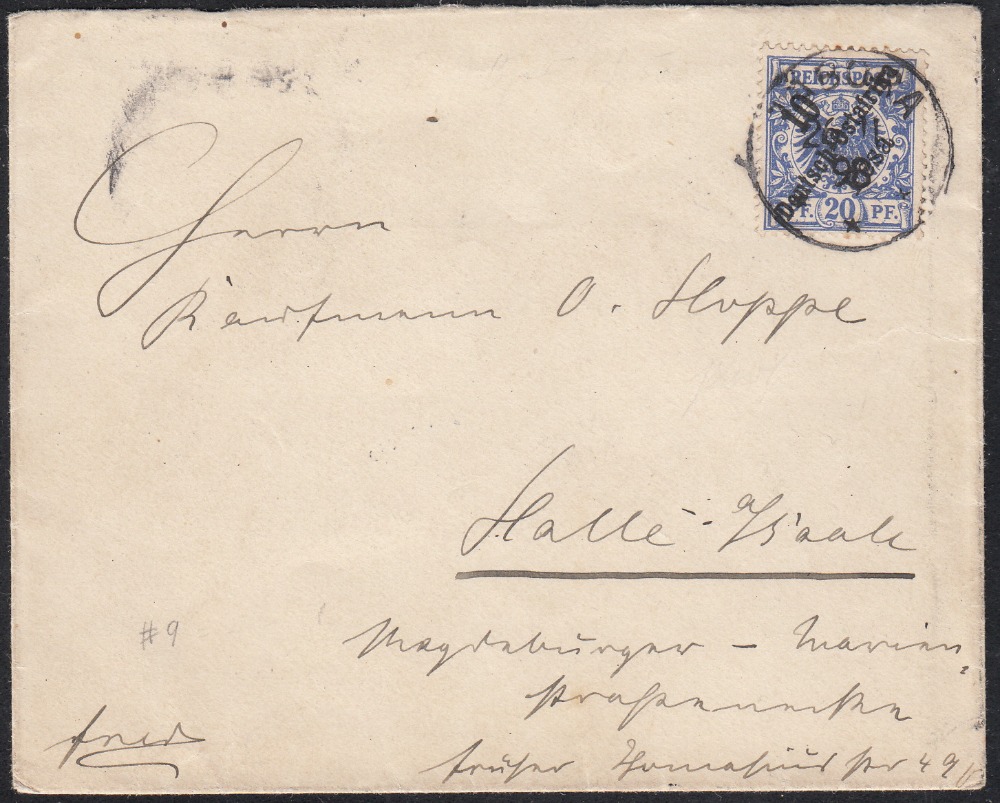 REICHSPOST
10 10
Deutsch-Ostafrika
Pesa
PF. 20 PF.
98
Herrn
Kaufmann O. Hoppe
Halle a/Saale
Magdeburger – Marien-
straßenecke
früher Thomasius str 49
#9